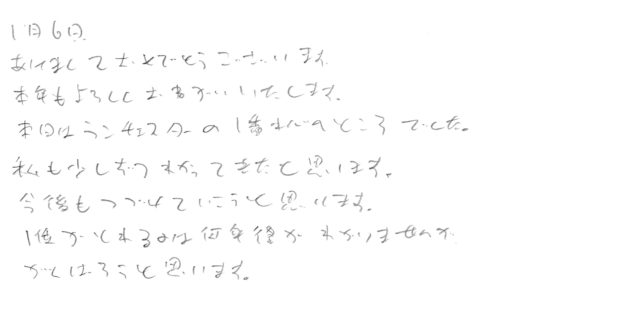 1月6日
あけましておめでとうございます
本年もよろしくお願いいたします。
本日はランチェスターの1番のところでした。
私も少しずつわかってきたと思います。
今後もつづけていこうと思います。
1位がとれるのは何年後かわかりませんが
がんばろうと思います。